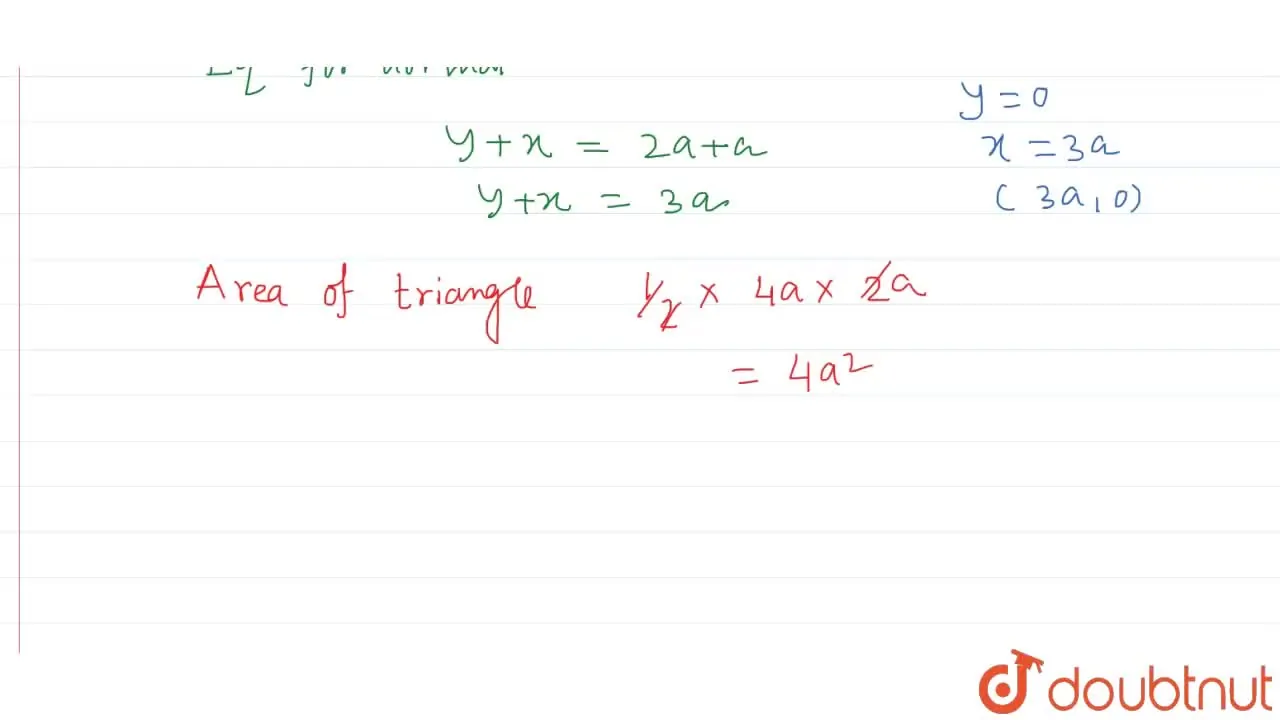 y = 0
y + x = 2a + a
x = 3a
y + x = 3a
(3a, 0)
Area of triangle 1/2 × 4a × 2a
= 4a²
doubtnut